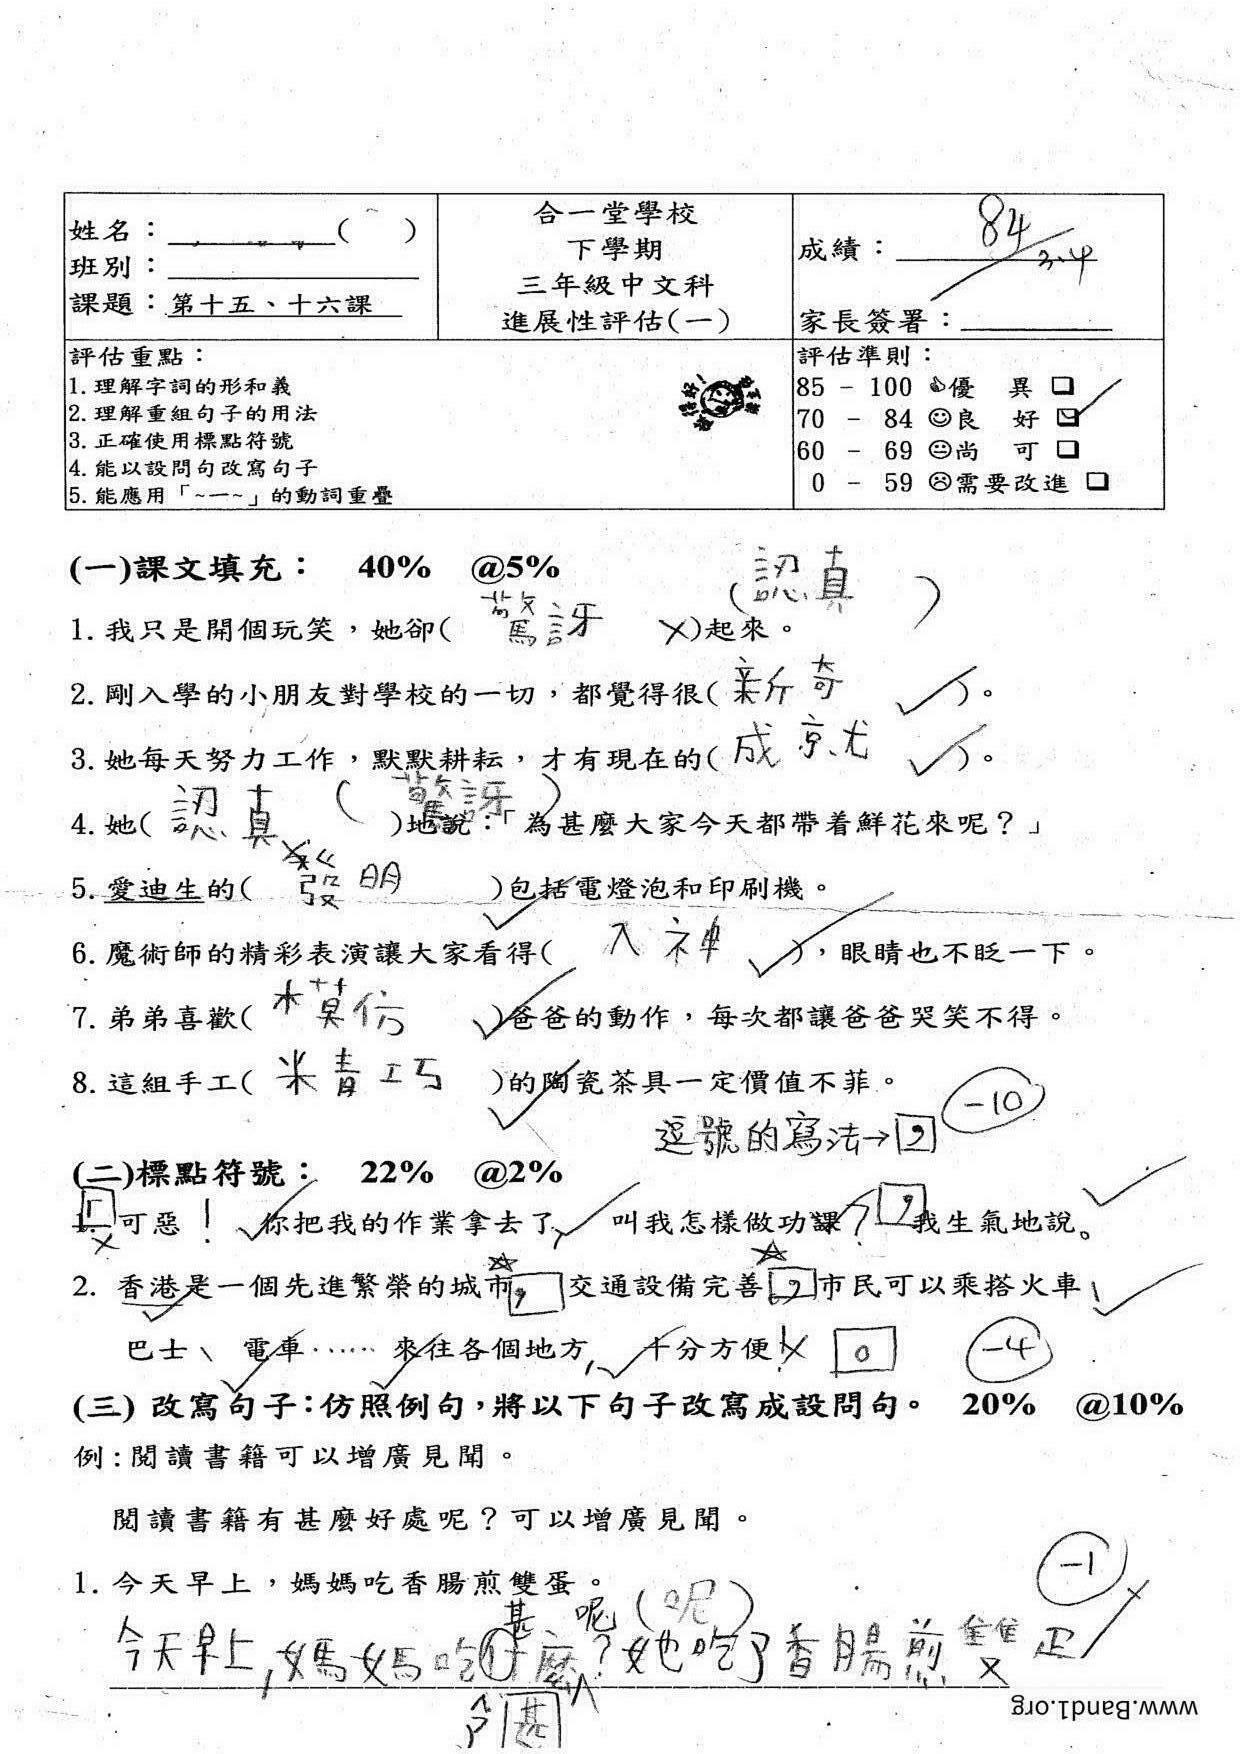 姓名：__________( )
班別：__________
課題：第十五、十六課
合一堂學校
下學期
三年級中文科
進展性評估(一)
成績：84
3.4
家長簽署：__________
評估重點：
1.理解字詞的形和義
2.理解重組句子的用法
3.正確使用標點符號
4.能以設問句改寫句子
5.能應用「~一~」的動詞重疊
評估準則：
85 - 100 優 異 ☐
70 - 84 ☺良 好 ☑
60 - 69 尚 可 ☐
0 - 59 ☹需要改進 ☐
(一)課文填充： 40% @5%
(認真)
1.我只是開個玩笑，她卻( 驚訝 ✗)起來。
2.剛入學的小朋友對學校的一切，都覺得很( 新奇 ✓)。
3.她每天努力工作，默默耕耘，才有現在的( 成就 ✓)。
(驚訝)
4.她( 認真 ✗)地說：「為甚麼大家今天都帶着鮮花來呢？」
5.愛迪生的( 發明 ✓)包括電燈泡和印刷機。
6.魔術師的精彩表演讓大家看得( 入神 ✓)，眼睛也不眨一下。
7.弟弟喜歡( 模仿 ✓)爸爸的動作，每次都讓爸爸哭笑不得。
8.這組手工( 精巧 ✓)的陶瓷茶具一定價值不菲。
-10
逗號的寫法→，
(二)標點符號： 22% @2%
1.「可惡！你把我的作業拿去了，叫我怎樣做功課？，我生氣地說。
2. 香港是一個先進繁榮的城市，交通設備完善，市民可以乘搭火車、
巴士、電車……來往各個地方，十分方便！✗ 。
-4
(三) 改寫句子：仿照例句，將以下句子改寫成設問句。 20% @10%
例：閱讀書籍可以增廣見聞。
閱讀書籍有甚麼好處呢？可以增廣見聞。
1.今天早上，媽媽吃香腸煎雙蛋。
-1
甚 呢 (呢)
今天早上，媽媽吃什麼？她吃了香腸煎雙
甚
www.Band1.org